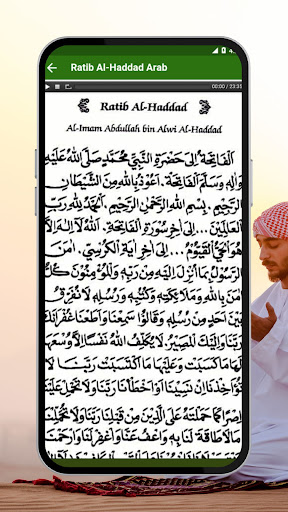 Ratib Al-Haddad Arab
00:00 / 23:31
Ratib Al-Haddad
Al-Imam Abdullah bin Alwi Al-Haddad
اَلْفَاتِحَةُ اِلَى حَضْرَةِ النَّبِيِّ مُحَمَّدٍ صَلَّى اللهُ عَلَيْهِ
وَاٰلِهِ وَسَلَّمَ اَلْفَاتِحَةَ. اَعُوْذُ بِاللهِ مِنَ الشَّيْطَانِ
الرَّجِيْمِ. بِسْمِ اللهِ الرَّحْمٰنِ الرَّحِيْمِ. اَلْحَمْدُ لِلّٰهِ رَبِّ
الْعَالَمِيْنَ... اِلَى اٰخِرِ سُوْرَةِ الْفَاتِحَةِ. اَللهُ لَا اِلٰهَ اِلَّا
هُوَ الْحَيُّ الْقَيُّوْمُ... اِلَى اٰخِرِ اٰيَةِ الْكُرْسِيِّ. اٰمَنَ
الرَّسُوْلُ بِمَا اُنْزِلَ اِلَيْهِ مِنْ رَبِّهِ وَالْمُؤْمِنُوْنَ كُلٌّ
اٰمَنَ بِاللهِ وَمَلَائِكَتِهِ وَكُتُبِهِ وَرُسُلِهِ لَا نُفَرِّقُ
بَيْنَ اَحَدٍ مِنْ رُسُلِهِ وَقَالُوْا سَمِعْنَا وَاَطَعْنَا غُفْرَانَكَ
رَبَّنَا وَاِلَيْكَ الْمَصِيْرُ. لَا يُكَلِّفُ اللهُ نَفْسًا اِلَّا وُسْعَهَا
لَهَا مَا كَسَبَتْ وَعَلَيْهَا مَا اكْتَسَبَتْ رَبَّنَا لَا
تُؤَاخِذْنَا اِنْ نَسِيْنَا اَوْ اَخْطَأْنَا رَبَّنَا وَلَا تَحْمِلْ عَلَيْنَا
اِصْرًا كَمَا حَمَلْتَهُ عَلَى الَّذِيْنَ مِنْ قَبْلِنَا رَبَّنَا وَلَا تُحَمِّلْنَا
مَا لَا طَاقَةَ لَنَا بِهِ وَاعْفُ عَنَّا وَاغْفِرْ لَنَا وَارْحَمْنَا